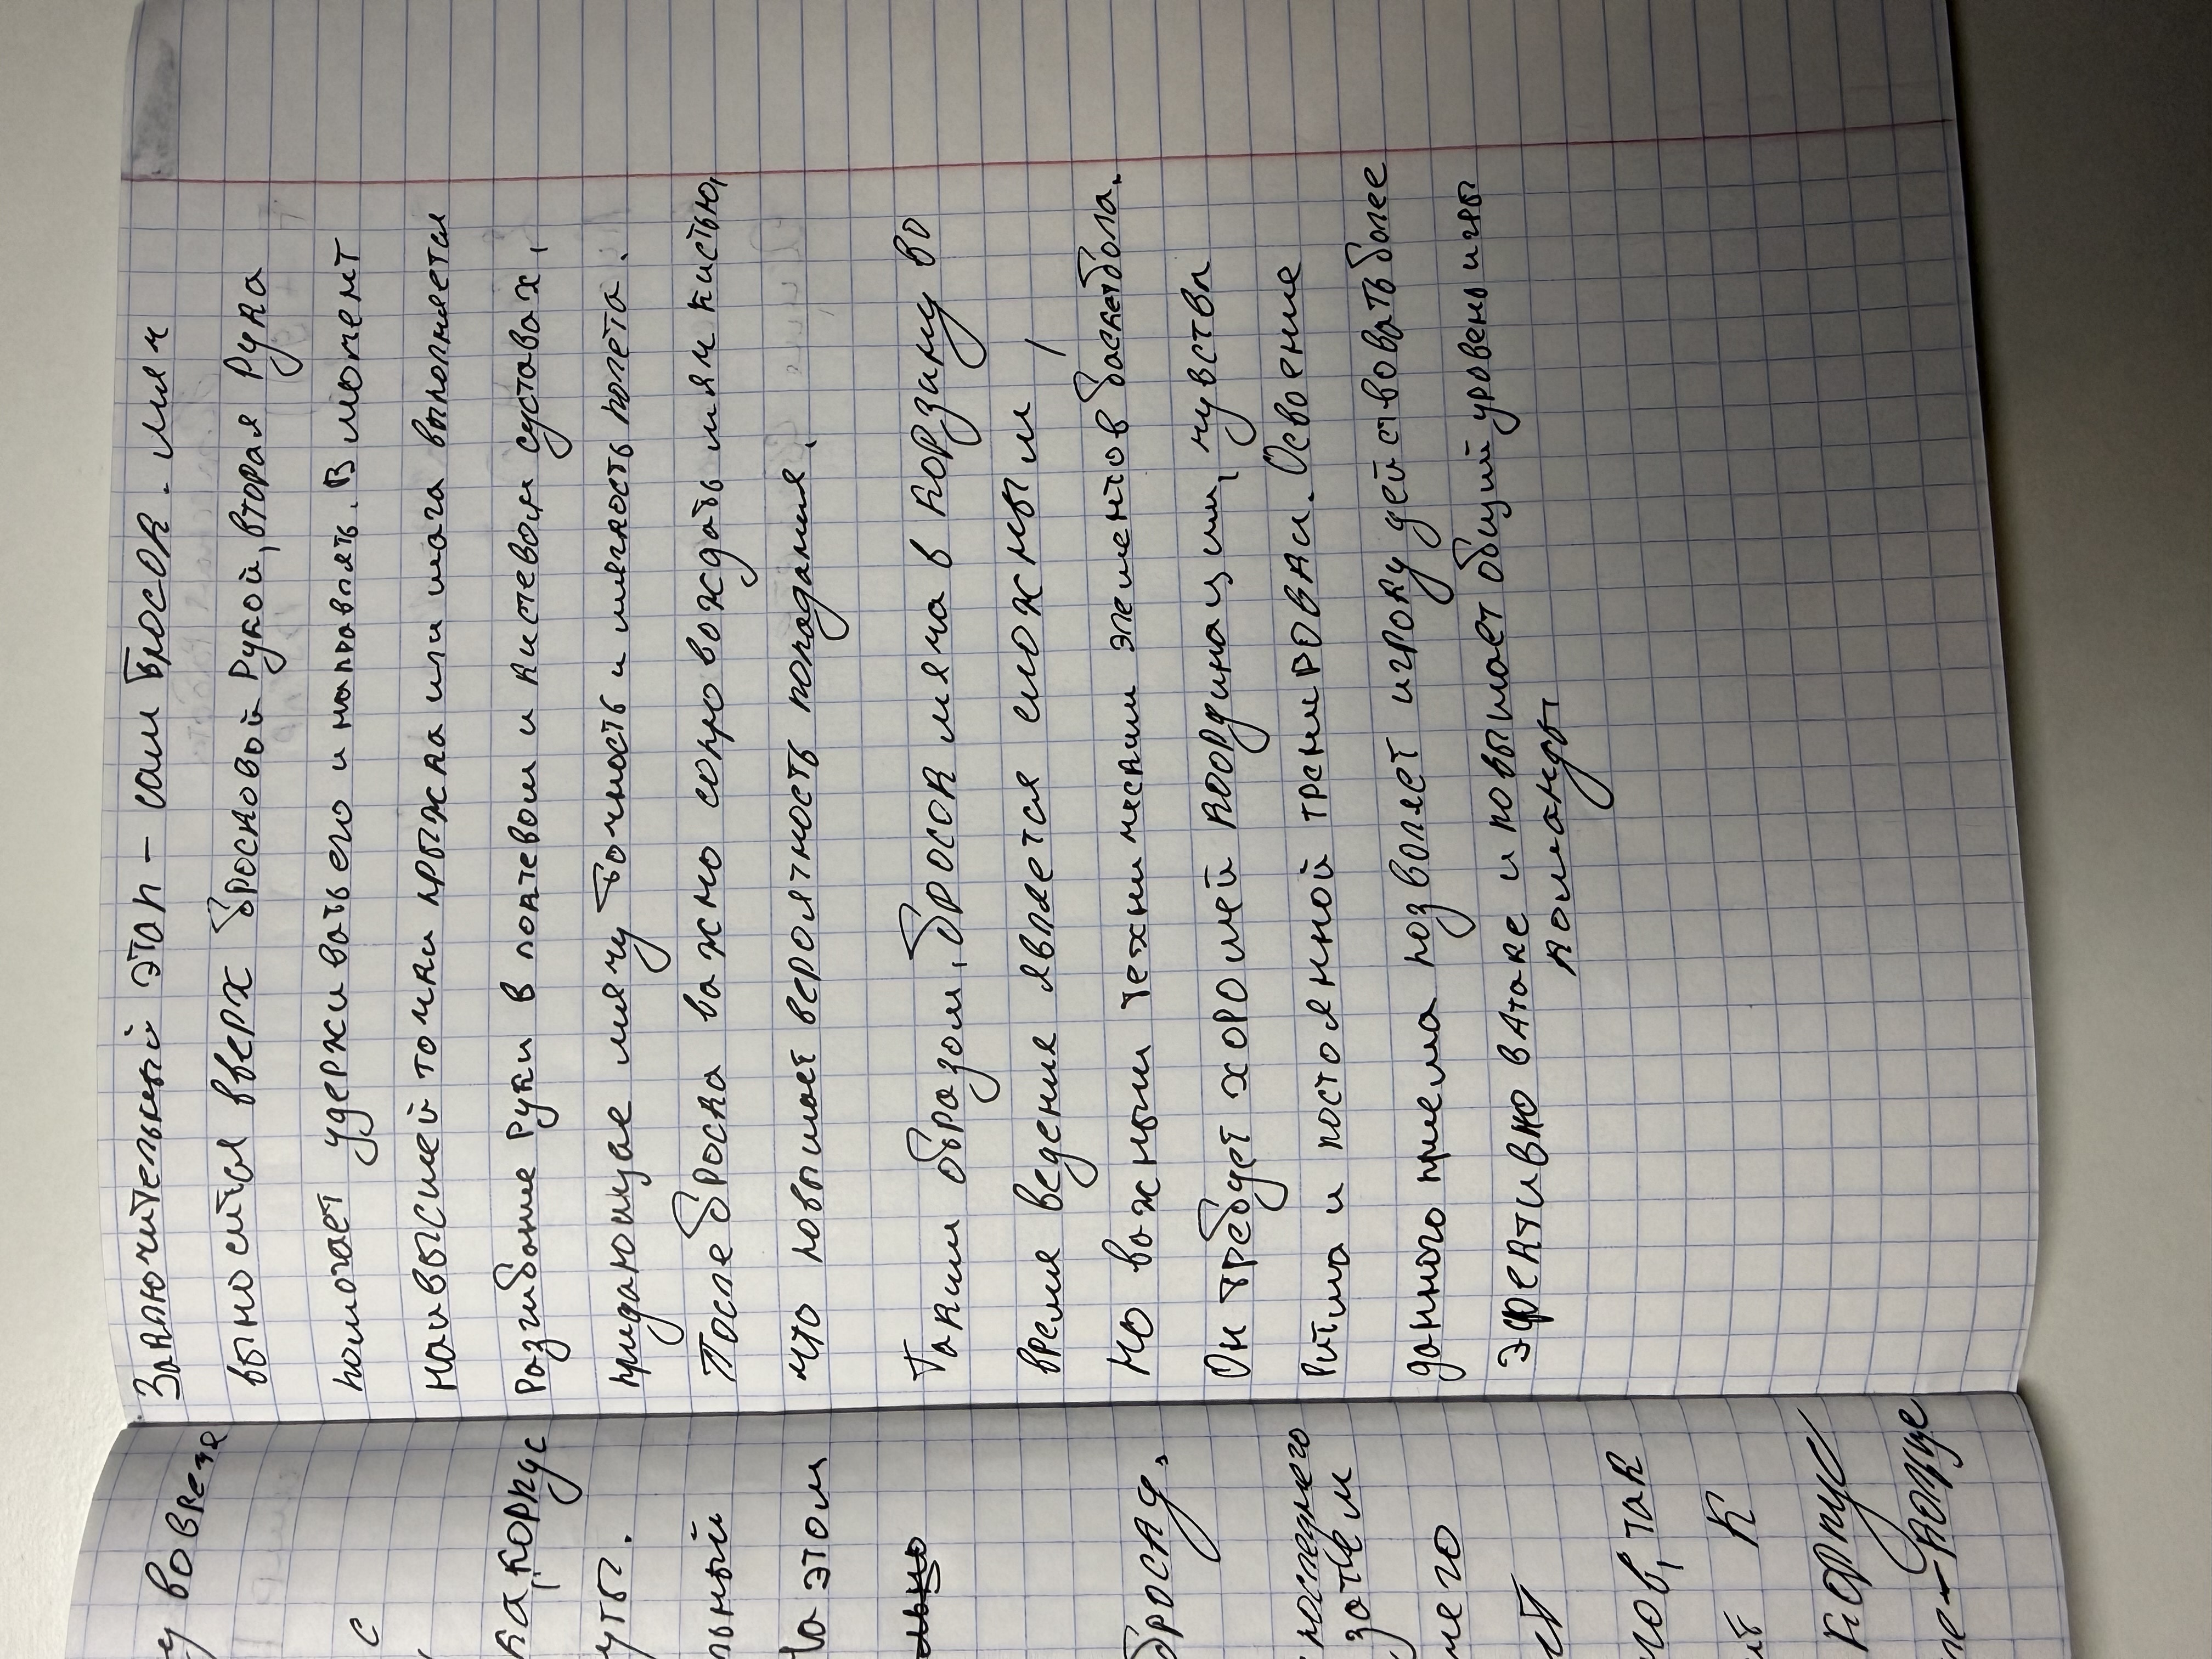 Заключительный этап – сам бросок. Мяч
выносится вверх бросковой рукой, вторая рука
помогает удерживать его и направлять. В момент
наивысшей точки прыжка или шага выполняется
разгибание руки в локтевом и кистевом суставах,
придающее мячу точность и мягкость полёта.
После броска важно сопровождать мяч кистью,
что повышает вероятность попадания.
Таким образом, бросок мяча в корзину во
время ведения является сложным,
но важным техническим элементов баскетбола.
Он требует хорошей координации, чувствы
ритма и постоянной тренировки. Освоение
данного приема позволяет игроку действовать более
эффективно в атаке и повышает общий уровень игры
команды
у во время
с
ка, корпус
уты.
льный
На этом
льно
броска.
последнего
затем
него
ст
гов, так
ит к
корпус
ле-кольце